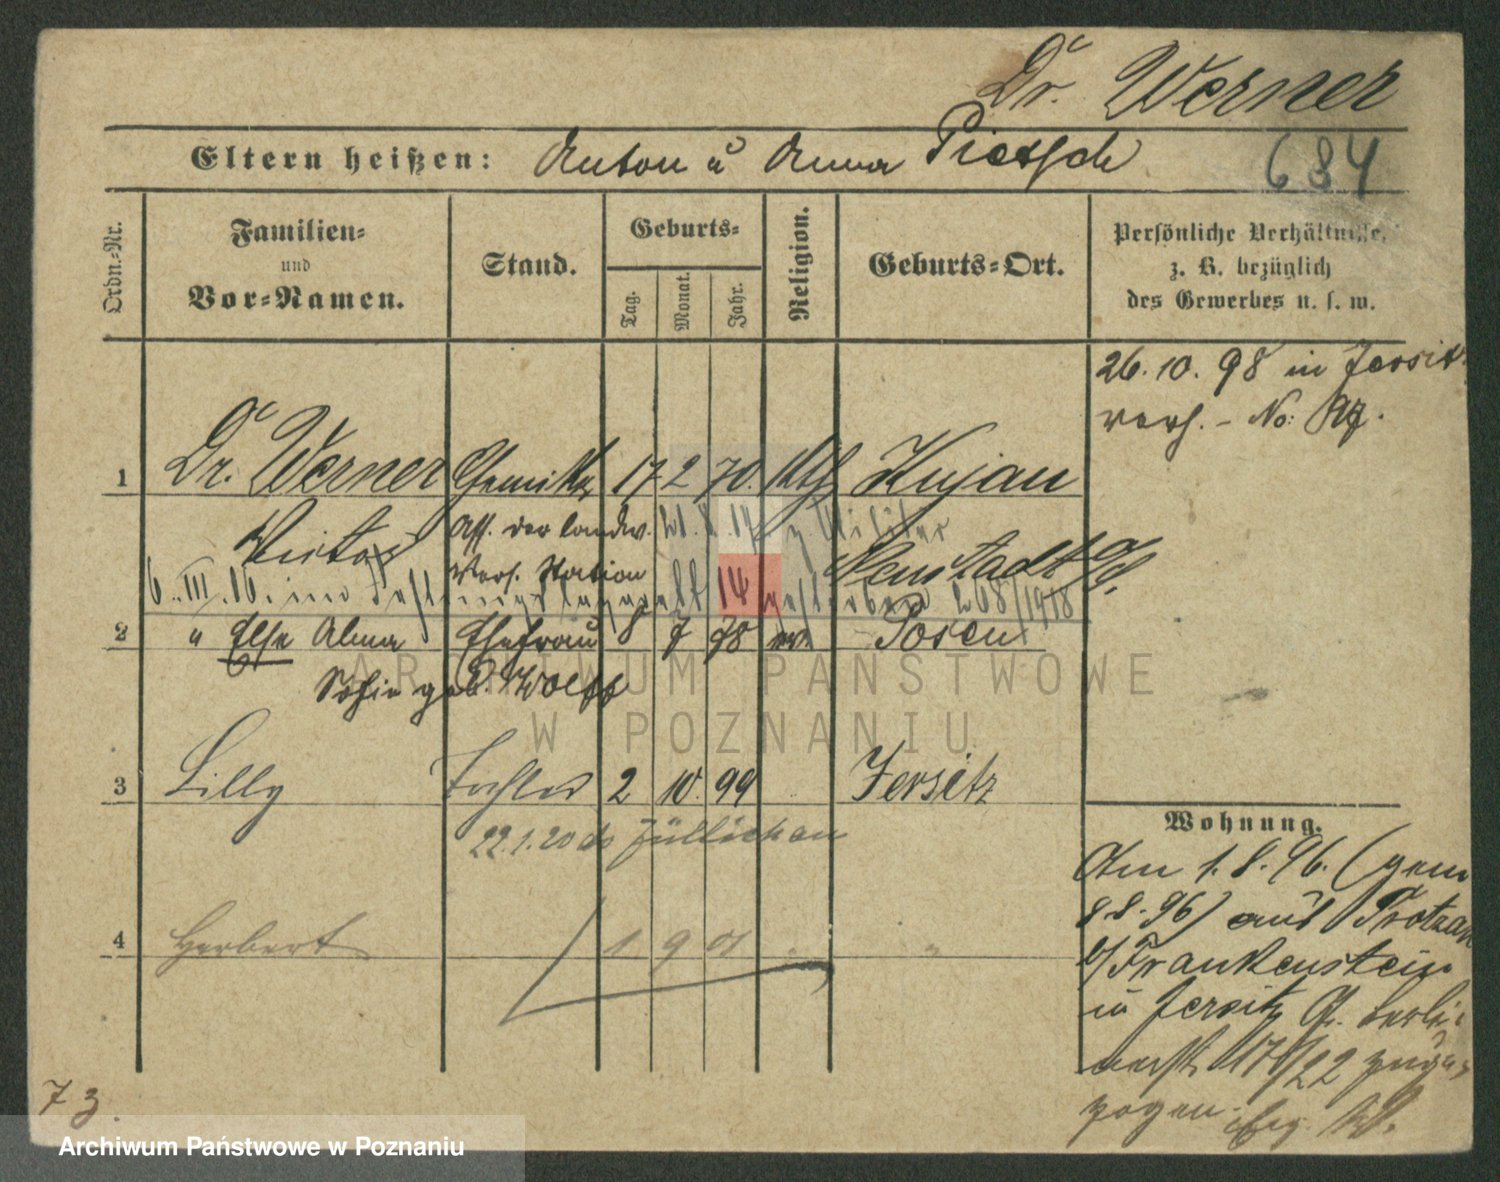 Dr. Werner
Eltern heißen: Anton u Anna Pietsch
684
Ordn.-Nr.
Familien-
und
Vor-Namen.
Stand.
Geburts-
Tag.
Monat.
Jahr.
Religion.
Geburts-Ort.
Persönliche Verhältnisse,
z. B. bezüglich
des Gewerbes u. s. w.
26. 10. 98 in Jersitz
verh. - No:
1 Dr. Werner Chemiker 17 2 70. kth Kujau
Victor
Ass. der landw.
z. Militär
Vers. Station
Neustadt o/S.
6. III. 16. im
14 gestorben 268/1918
2 " Else Alma Ehefrau 8 7 78 ev. Posen
Sofie geb. Wolff
ARCHIWUM PAŃSTWOWE
W POZNANIU
3 Lilly Tochter 2 10. 99 Jersitz
22.1.20 do Züllichau
4 Herbert 1 9 01 " "
Wohnung.
Am 1. 8. 96. (gem
8 8. 96) aus Protzan
b/Frankenstein
in Jersitz Gr. Berli-
nerst. 17/22 zuge-
zogen.
7 3.
Archiwum Państwowe w Poznaniu